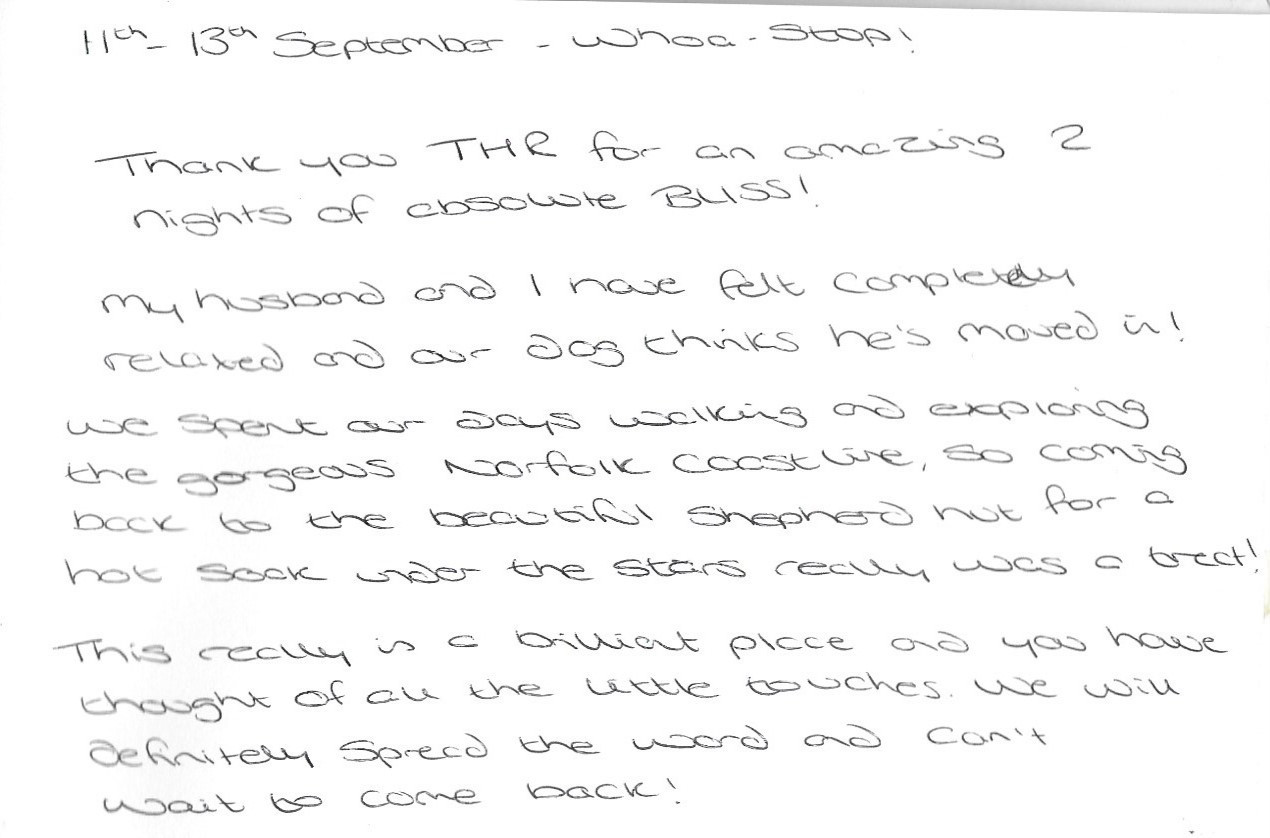 11th - 13th September - Whoa-Stop!
Thank you THR for an amazing 2
nights of absolute BLISS!
My husband and I have felt completely
relaxed and our dog thinks he's moved in!
We spent our days walking and exploring
the gorgeous Norfolk Coastline, so coming
back to the beautiful Shepherd hut for a
hot soak under the stars really was a treat!
This really is a brilliant place and you have
thought of all the little touches. We will
definitely spread the word and can't
wait to come back!